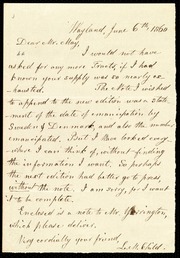 Wayland, June 6th, 1860
Dear Mr. May,
I would not have
asked for any more Tracts, if I had
known your supply was so nearly ex-
hausted. The Note I wished
to append to the new edition was a state-
ment of the date of emancipation by
Sweden & Denmark, and also the number
emancipated. But I have looked every
where I can think of, without finding
the information I want. So perhaps
the next edition had better go to press,
without the note. I am sorry, for I want
it to be complete.
Enclosed is a note to Mr. Yerrington,
which please deliver.
Very cordially your friend,
L. M. Child.